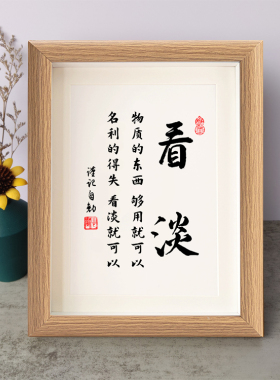 看淡
物质的东西 够用就可以
名利的得失 看淡就可以
谨记自勉